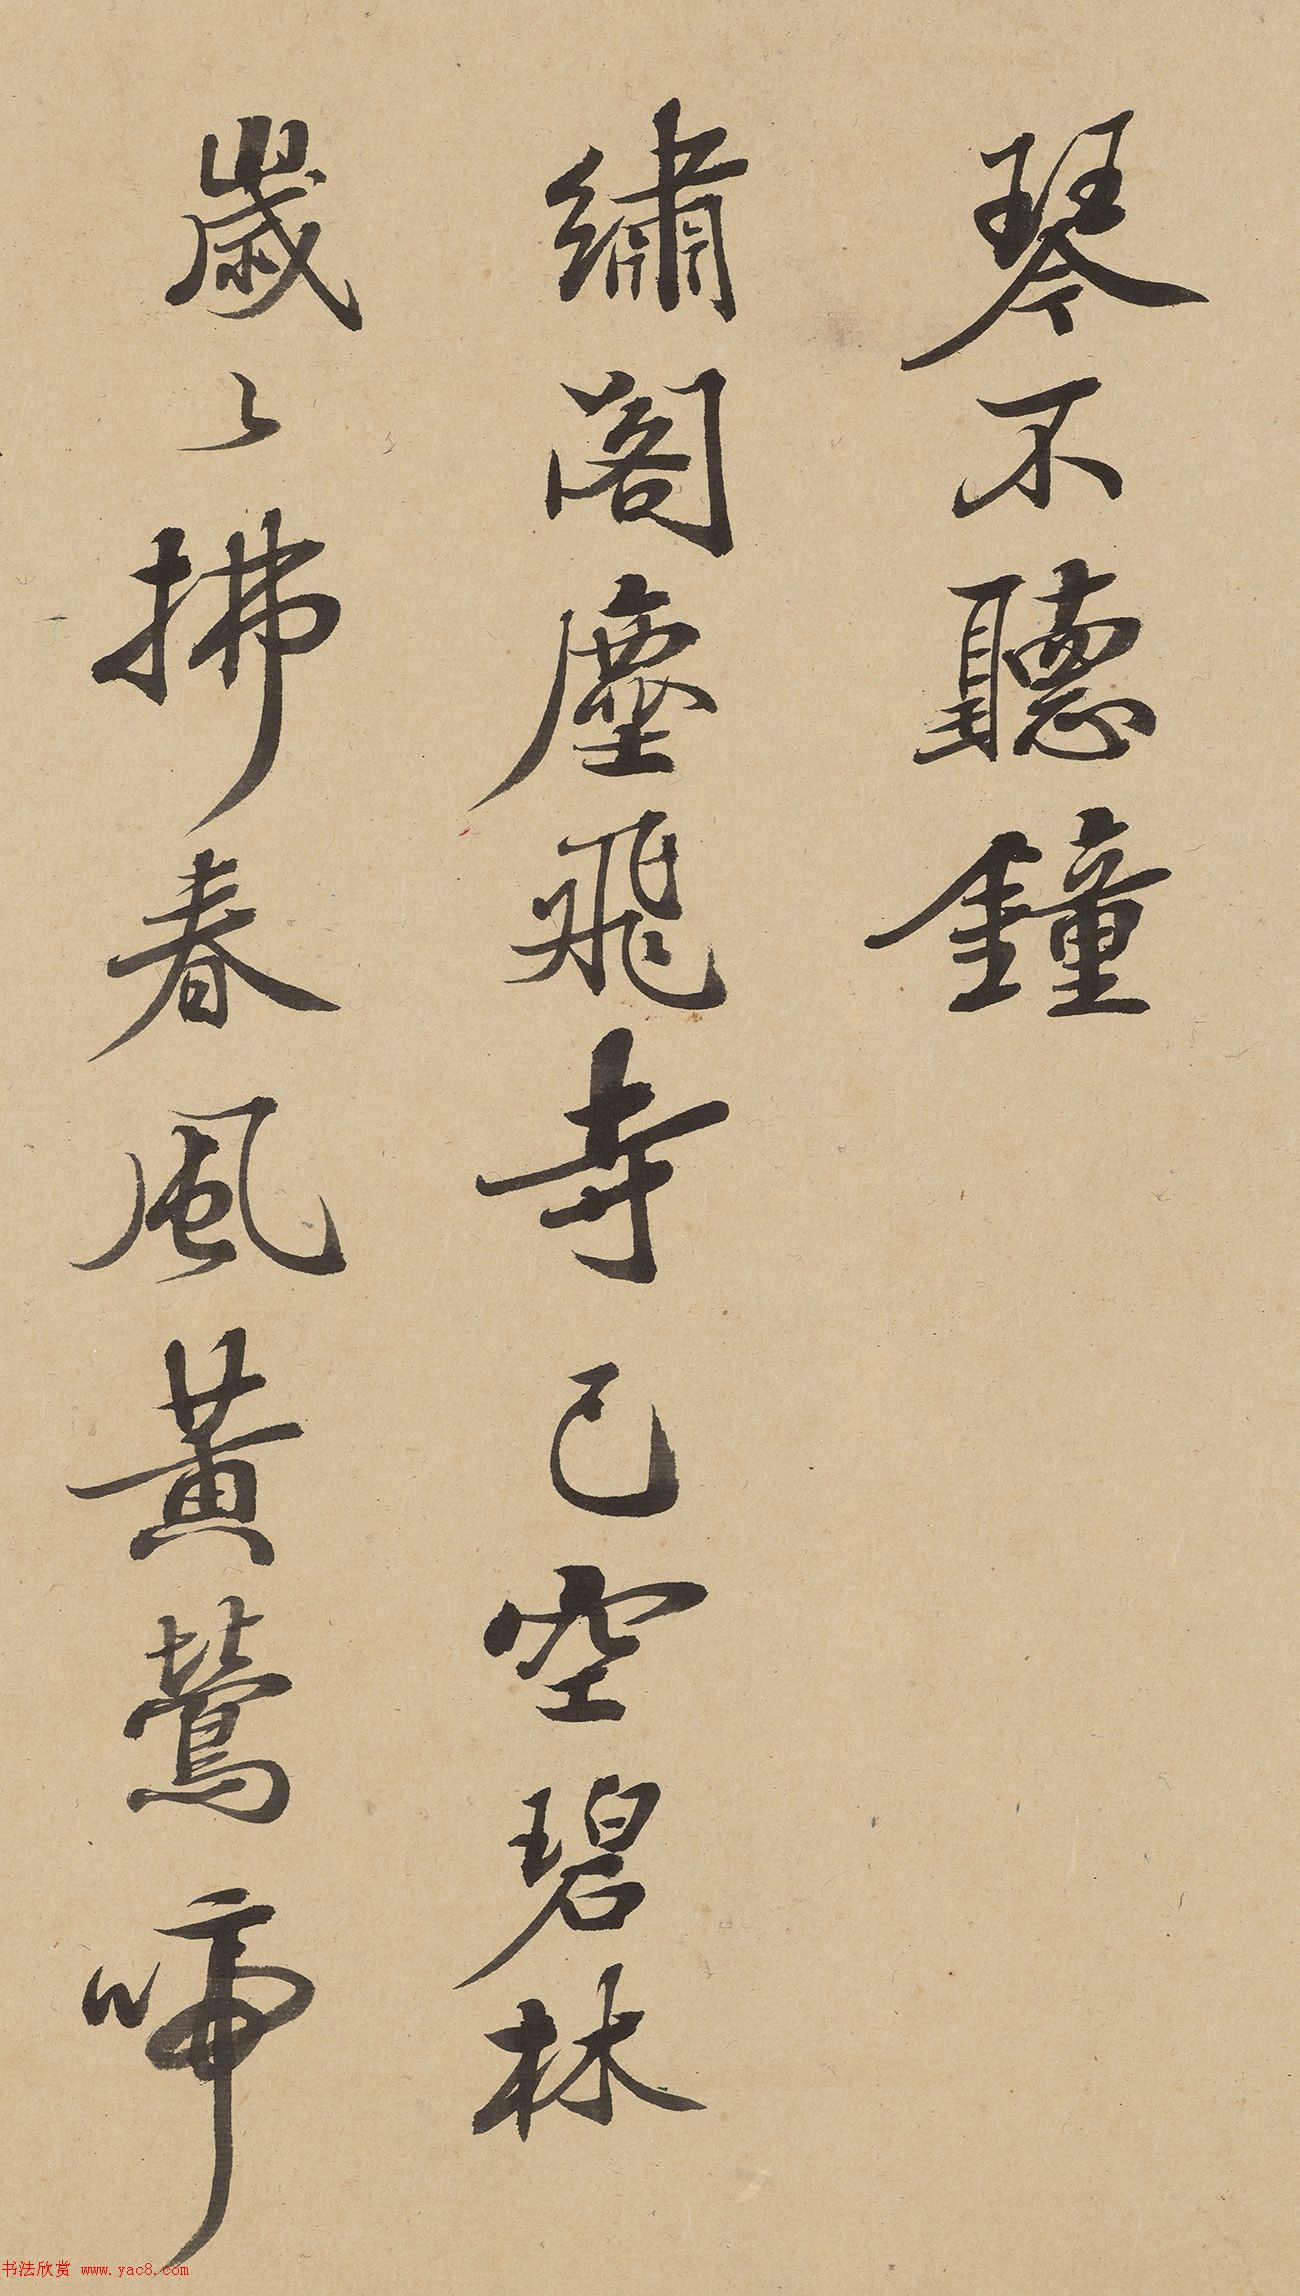 琴不聽鐘
繡閣塵飛寺已空碧林
歲〻拂春風黃鶯啼
书法欣赏 www.yac8.com